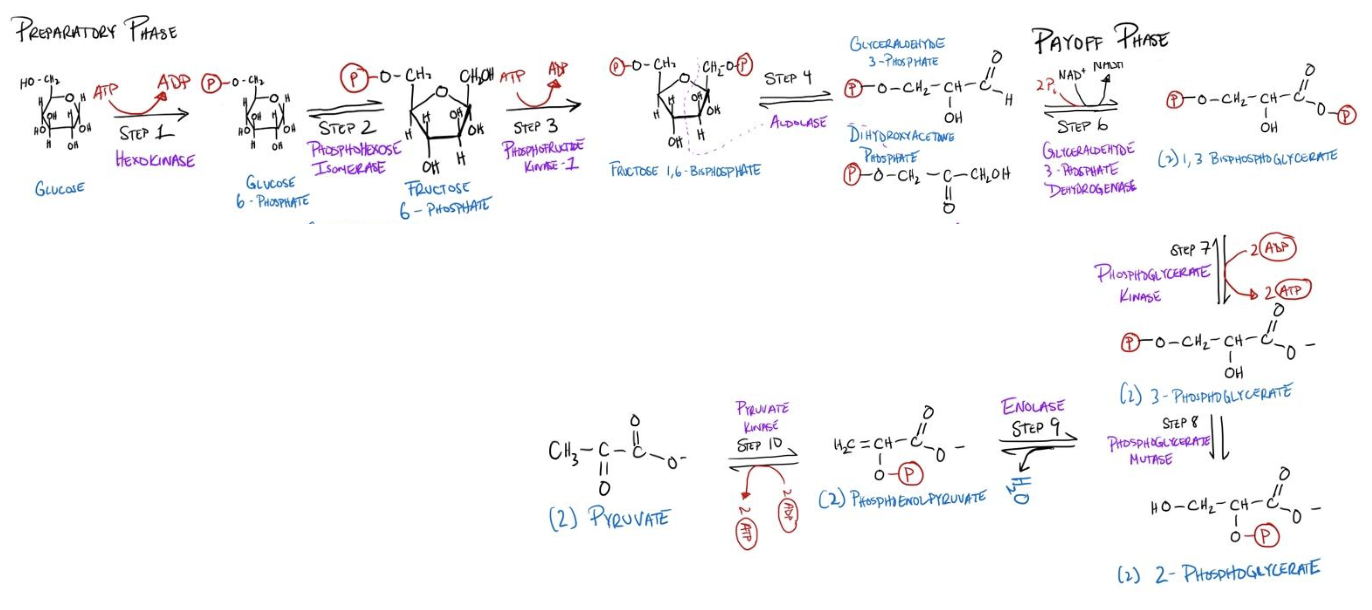 PREPARATORY PHASE
HO-CH₂
ATP
ADP
STEP 1
HEXOKINASE
GLUCOSE
P-O-CH₂
STEP 2
PHOSPHOHEXOSE
ISOMERASE
GLUCOSE
6-PHOSPHATE
P-O-CH₂
CH₂OH
FRUCTOSE
6-PHOSPHATE
ATP
ADP
STEP 3
PHOSPHOFRUCTO
KINASE-1
P-O-CH₂
CH₂-O-P
FRUCTOSE 1,6-BISPHOSPHATE
STEP 4
ALDOLASE
GLYCERALDEHYDE
3-PHOSPHATE
P-O-CH₂-CH-C
O
H
OH
DIHYDROXYACETONE
PHOSPHATE
P-O-CH₂-C-CH₂OH
O
PAYOFF PHASE
2Pi
NAD⁺
NADH
STEP 6
GLYCERALDEHYDE
3-PHOSPHATE
DEHYDROGENASE
P-O-CH₂-CH-C
O
O-P
OH
(2) 1,3 BISPHOSPHOGLYCERATE
STEP 7
2 ADP
PHOSPHOGLYCERATE
KINASE
2 ATP
P-O-CH₂-CH-C
O
O-
OH
(2) 3-PHOSPHOGLYCERATE
STEP 8
PHOSPHOGLYCERATE
MUTASE
HO-CH₂-CH-C
O
O-
O-P
(2) 2-PHOSPHOGLYCERATE
ENOLASE
STEP 9
H₂O
H₂C=CH-C
O
O-
O-P
(2) PHOSPHOENOLPYRUVATE
PYRUVATE
KINASE
STEP 10
2 ADP
2 ATP
CH₃-C-C
O
O-
O
(2) PYRUVATE